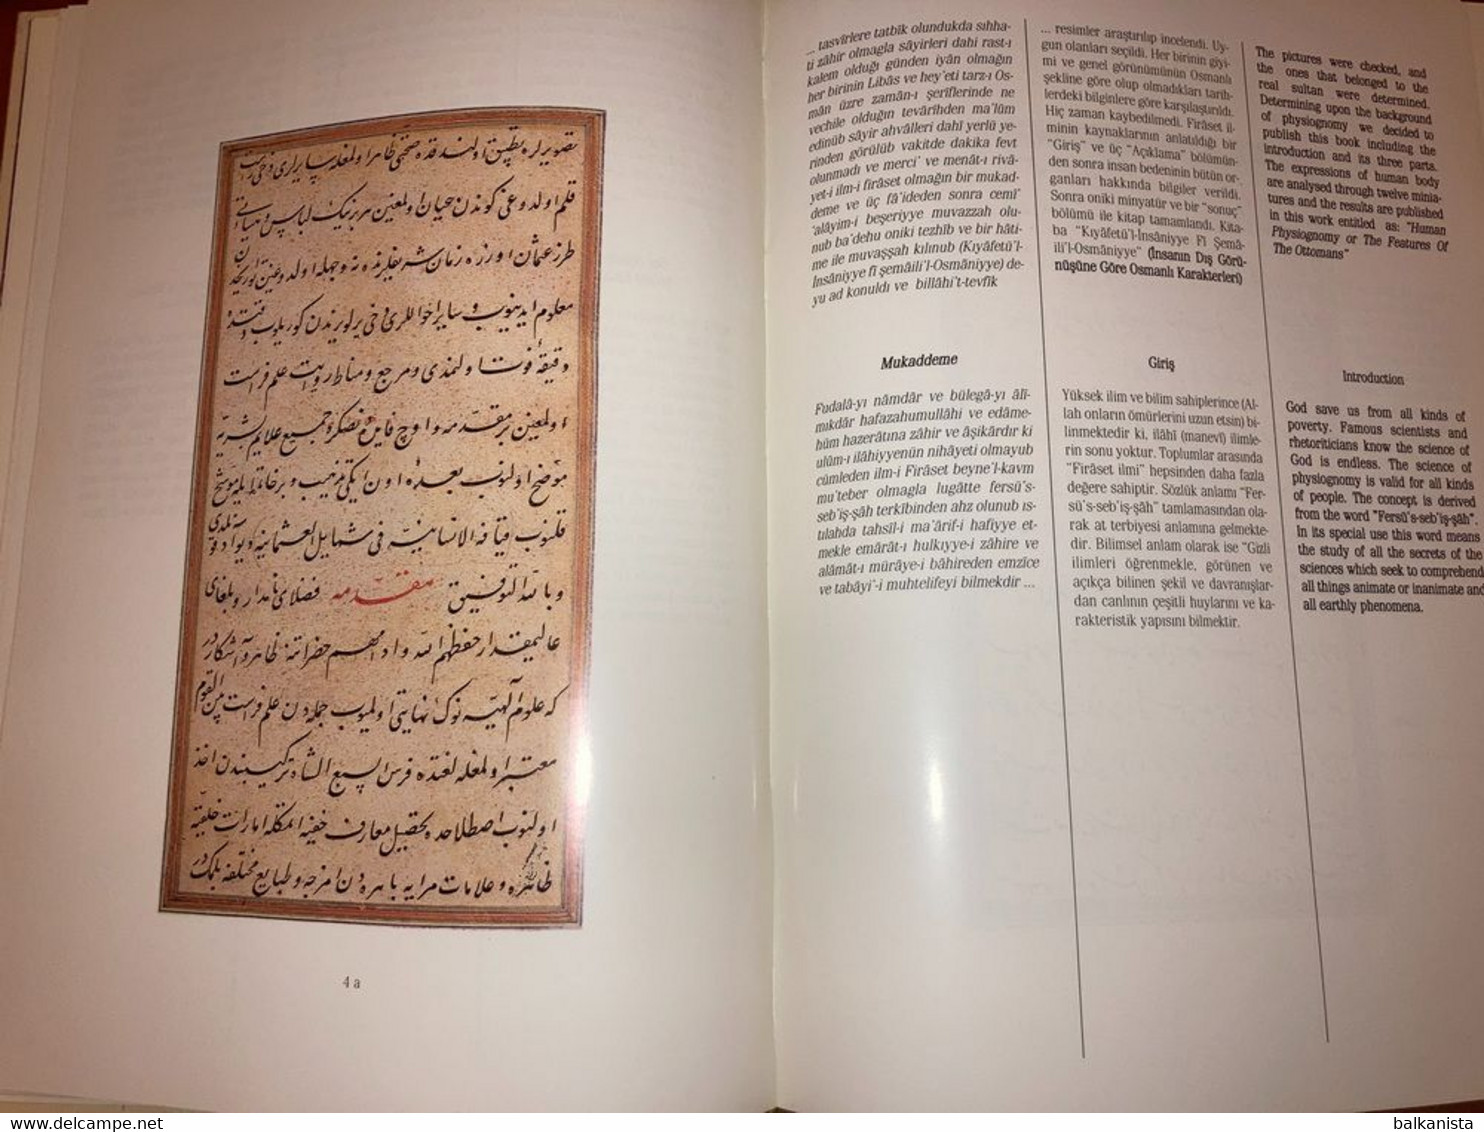 تصویرلره تطبیق اولندقده صحتی ظاهر اولمغله سایرلری دخی راست
قلم اولدوغی کوندن عیان اولمغین هر برینک لباس و هیأتی
طرز عثمان اوزره زمان شریفلرنده نه وجهله اولدوغین تواریخدن
معلوم ایدینوب و سایر احواللری دخی یرلو یرندن کوریلوب وقتده
دقیقه فوت اولنمدی و مرجع و مناط روایت علم فراست
اولمغین بر مقدمه و اوچ فایده دنصکره جمیع علایم بشریه
موضح اولنوب بعده اون ایکی تذهیب و بر خاتمه ایله موشح
قلنوب قیافة الانسانیه فی شمایل العثمانیه دیو اد قونلدی
و بالله التوفیق مقدمه فضلای نامدار و بلغای
عالیمقدار حفظهم الله و ادامهم حضراتنه ظاهر و آشکاردر
که علوم آلهیه نوک نهایتی اولمیوب جمله دن علم فراست بین القوم
معتبر اولمغله لغتده فرس السبع الشاة ترکیبندن اخذ
اولنوب اصطلاحده تحصیل معارف خفیه ایتمکله امارات خلقیه
ظاهره و علامات مرایه باهره دن امزجه و طبایع مختلفه یی بلمکدر
4 a
... tasvîrlere tatbîk olundukda sıhha-
ti zâhir olmagla sâyirleri dahi rast-ı
kalem olduğı günden iyân olmağın
her birinin Libâs ve hey'eti tarz-ı Os-
mân üzre zamân-ı şerîflerinde ne
vechile olduğın tevârîhden ma'lûm
edinüb sâyir ahvâlleri dahî yerlü ye-
rinden görülüb vakitde dakika fevt
olunmadı ve merci' ve menât-ı rivâ-
yet-i ilm-i firâset olmağın bir mukad-
deme ve üç fâ'ideden sonra cemî'
'alâyim-i beşeriyye muvazzah olu-
nub ba'dehu oniki tezhîb ve bir hâti-
me ile muvaşşah kılınub (Kıyâfetü'l-
İnsâniyye fî şemâili'l-Osmâniyye) de-
yu ad konuldı ve billâhi't-tevfîk
Mukaddeme
Fudalâ-yı nâmdâr ve bülegâ-yı âlî-
mıkdâr hafazahumullâhi ve edâme-
hüm hazerâtına zâhir ve âşikârdır ki
ulûm-ı ilâhiyyenin nihâyeti olmayub
cümleden ilm-i Firâset beyne'l-kavm
mu'teber olmagla lugâtte fersü's-
seb'iş-şâh terkîbinden ahz olunub ıs-
tılahda tahsîl-i ma'ârif-i hafiyye et-
mekle emârât-ı hulkıyye-i zâhire ve
alâmât-ı mürâye-i bâhireden emzice
ve tabâyi'-i muhtelifeyi bilmekdir ...
... resimler araştırılıp incelendi. Uy-
gun olanları seçildi. Her birinin giyi-
mi ve genel görünümünün Osmanlı
şekline göre olup olmadıkları tarih-
lerdeki bilginlere göre karşılaştırıldı.
Hiç zaman kaybedilmedi. Firâset il-
minin kaynaklarının anlatıldığı bir
"Giriş" ve üç "Açıklama" bölümün-
den sonra insan bedeninin bütün or-
ganları hakkında bilgiler verildi.
Sonra oniki minyatür ve bir "sonuç"
bölümü ile kitap tamamlandı. Kita-
ba "Kıyafetü'l-İnsâniyye Fî Şemâ-
ili'l-Osmâniyye" (İnsanın Dış Görü-
nüşüne Göre Osmanlı Karakterleri)
Giriş
Yüksek ilim ve bilim sahiplerince (Al-
lah onların ömürlerini uzun etsin) bi-
linmektedir ki, ilâhî (manevî) ilimle-
rin sonu yoktur. Toplumlar arasında
"Firâset ilmi" hepsinden daha fazla
değere sahiptir. Sözlük anlamı "Fer-
sü's-seb'iş-şâh" tamlamasından ola-
rak at terbiyesi anlamına gelmekte-
dir. Bilimsel anlam olarak ise "Gizli
ilimleri öğrenmekle, görünen ve
açıkça bilinen şekil ve davranışlar-
dan canlının çeşitli huylarını ve ka-
rakteristik yapısını bilmektir.
The pictures were checked, and
the ones that belonged to the
real sultan were determined.
Determining upon the background
of physiognomy we decided to
publish this book including the
introduction and its three parts.
The expressions of human body
are analysed through twelve minia-
tures and the results are published
in this work entitled as: "Human
Physiognomy or The Features Of
The Ottomans"
Introduction
God save us from all kinds of
poverty. Famous scientists and
rhetoricians know the science of
God is endless. The science of
physiognomy is valid for all kinds
of people. The concept is derived
from the word "Fersü's-seb'iş-şâh".
In its special use this word means
the study of all the secrets of the
sciences which seek to comprehend
all things animate or inanimate and
all earthly phenomena.
balkanista